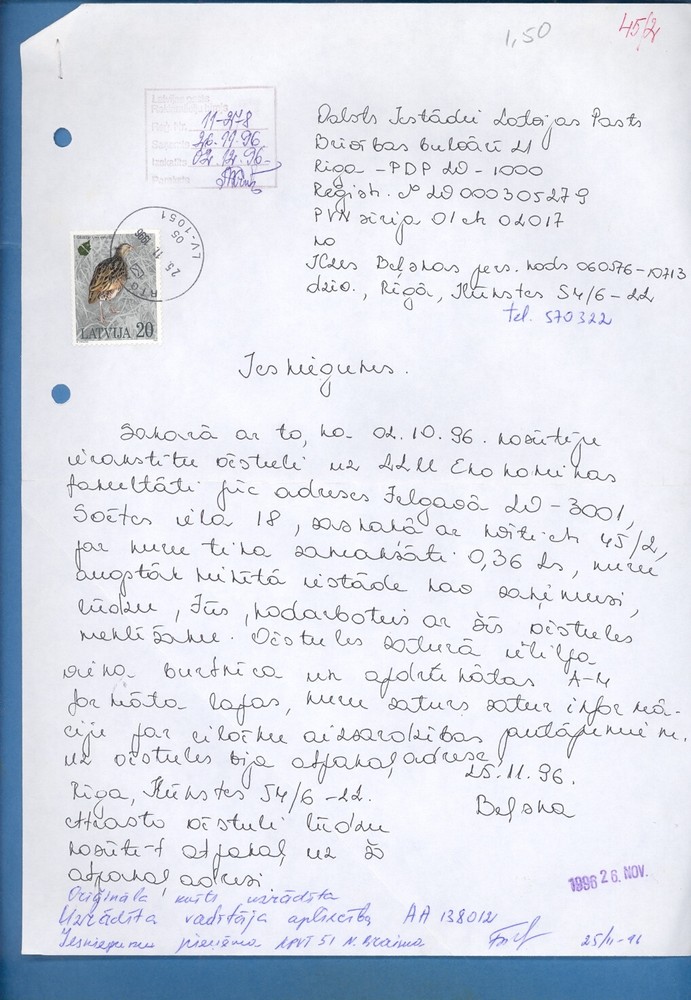 1,50
45/2
11-278
30.11.96.
02.12.96.
LV-1051
LATVIJA 20
Valsts Iestādei Latvijas Pasts
Brīvības bulvārī 21
Rīga - PDP LV - 1000
Reģistr. № LV 000305279
PVN sērija 01 ch 02017
no
Ilzes Beļskas pers. kods 060576-10713
dzīv., Rīgā, Kūkstes 54/6-22
tel. 570322
Iesniegums.
Sakarā ar to, ka 02.10.96. nosūtīju
ierakstītu vēstuli uz LLU Ekonomikas
fakultāti pēc adreses Jelgavā LV-3001,
Svētes ielā 18, saskaņā ar kvīti ch 45/2,
par kuru tika samaksāti 0,36 Ls, kuru
augstāk minētā iestāde nav saņēmusi,
lūdzu, Jūs, nodarboties ar šīs vēstules
meklēšanu. Vēstules saturā ietilpa
viena burtnīca un apdrukātas A-4
formāta lapas, kuru saturs satur informā-
ciju par cilvēku aizsardzības jautājumiem.
uz vēstules bija atpakaļadrese:
25.11.96.
Rīga, Kūkstes 54/6-22.
Beļska
Atrasto vēstuli lūdzu
nosūtīt atpakaļ uz šo
atpakaļadresi
1996 26. NOV.
Oriģināla kvīts uzrādīta
Uzrādīta vadītāja apliecība AA 138012
Iesniegumu pieņēma 51 N.
25/11-96